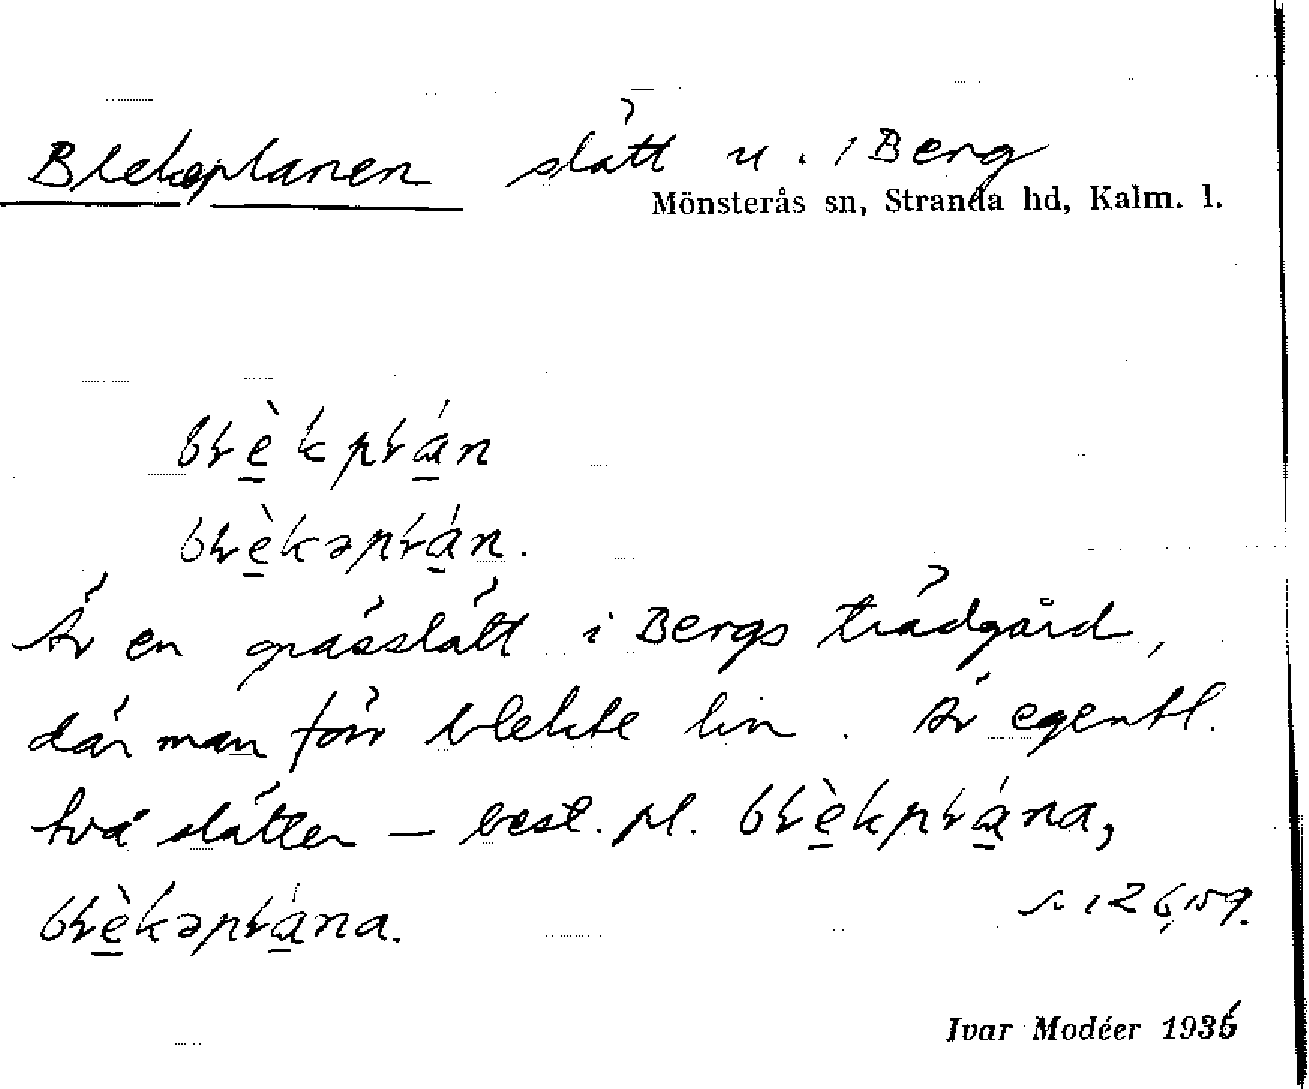 Blekeplanen slätt u. 1 Berg
Mönsterås sn, Stranda hd, Kalm. l.
bɫè̱kpɫá̱n
bɫè̱kəpɫá̱n.
Är en grässlätt i Bergs trädgård,
där man förr blekte lin. Är egentl.
två slätter – best. pl. bɫè̱kpɫá̱na,
bɫè̱kəpɫá̱na.
Ivar Modéer 1936